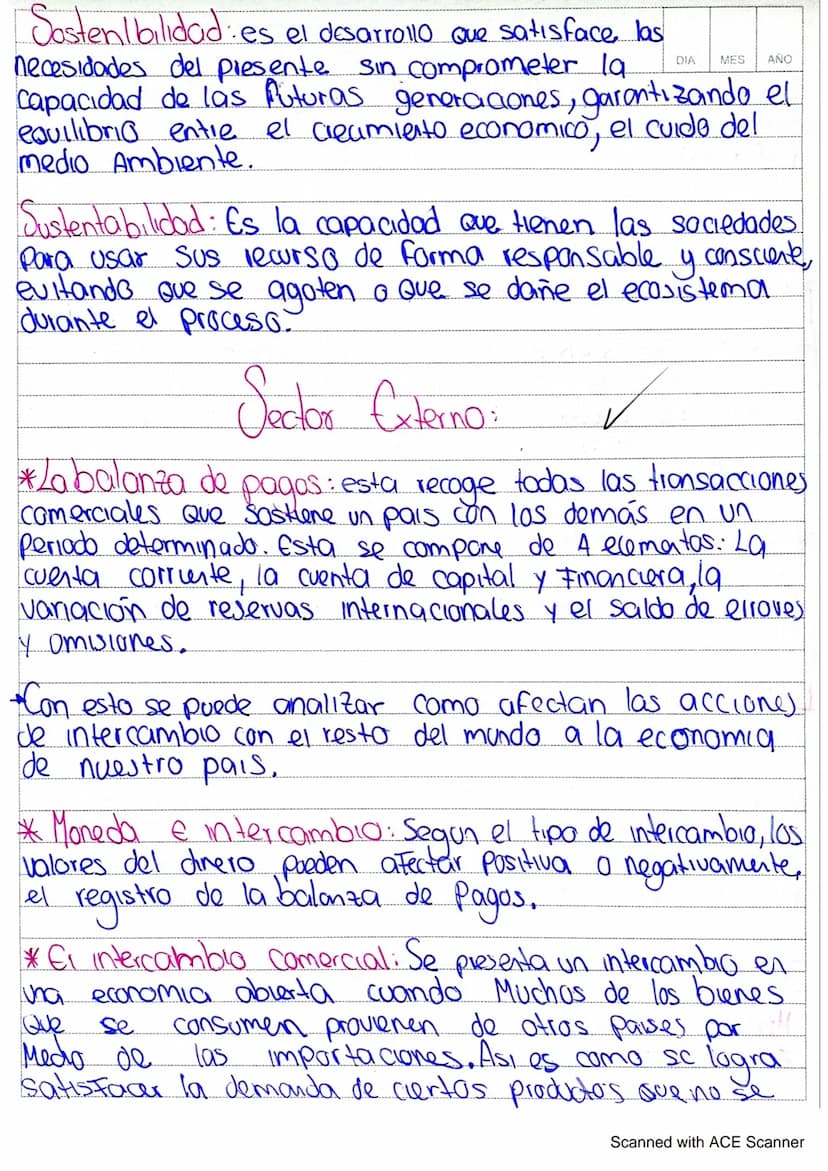 Sostenibilidad: es el desarrollo que satisface las
DIA MES AÑO
necesidades del presente sin comprometer la
capacidad de las futuras generaciones, garantizando el
equilibrio entre el crecimiento economico, el cuido del
medio Ambiente.
Sustentabilidad: Es la capacidad que tienen las sociedades
para usar sus recurso de forma responsable y consciente,
evitando que se agoten o que se dañe el ecosistema
durante el proceso.
Sector Externo:
*La balanza de pagos: esta recoge todas las transacciones
comerciales que sostiene un pais con los demás en un
periodo determinado. Esta se compone de 4 elementos: La
cuenta corriente, la cuenta de capital y Financiera, la
variación de reservas internacionales y el saldo de errores
y omisiones.
Con esto se puede analizar como afectan las acciones
de intercambio con el resto del mundo a la economia
de nuestro pais.
* Moneda e intercambio: Segun el tipo de intercambio, los
valores del dinero pueden afectar positiva o negativamente,
el registro de la balanza de Pagos.
* El intercambio comercial: Se presenta un intercambio en
una economia abierta cuando Muchos de los bienes
que se consumen provienen de otros paises por
Medio de las importaciones. Asi es como se logra
satisfacer la demanda de ciertos productos que no se
Scanned with ACE Scanner